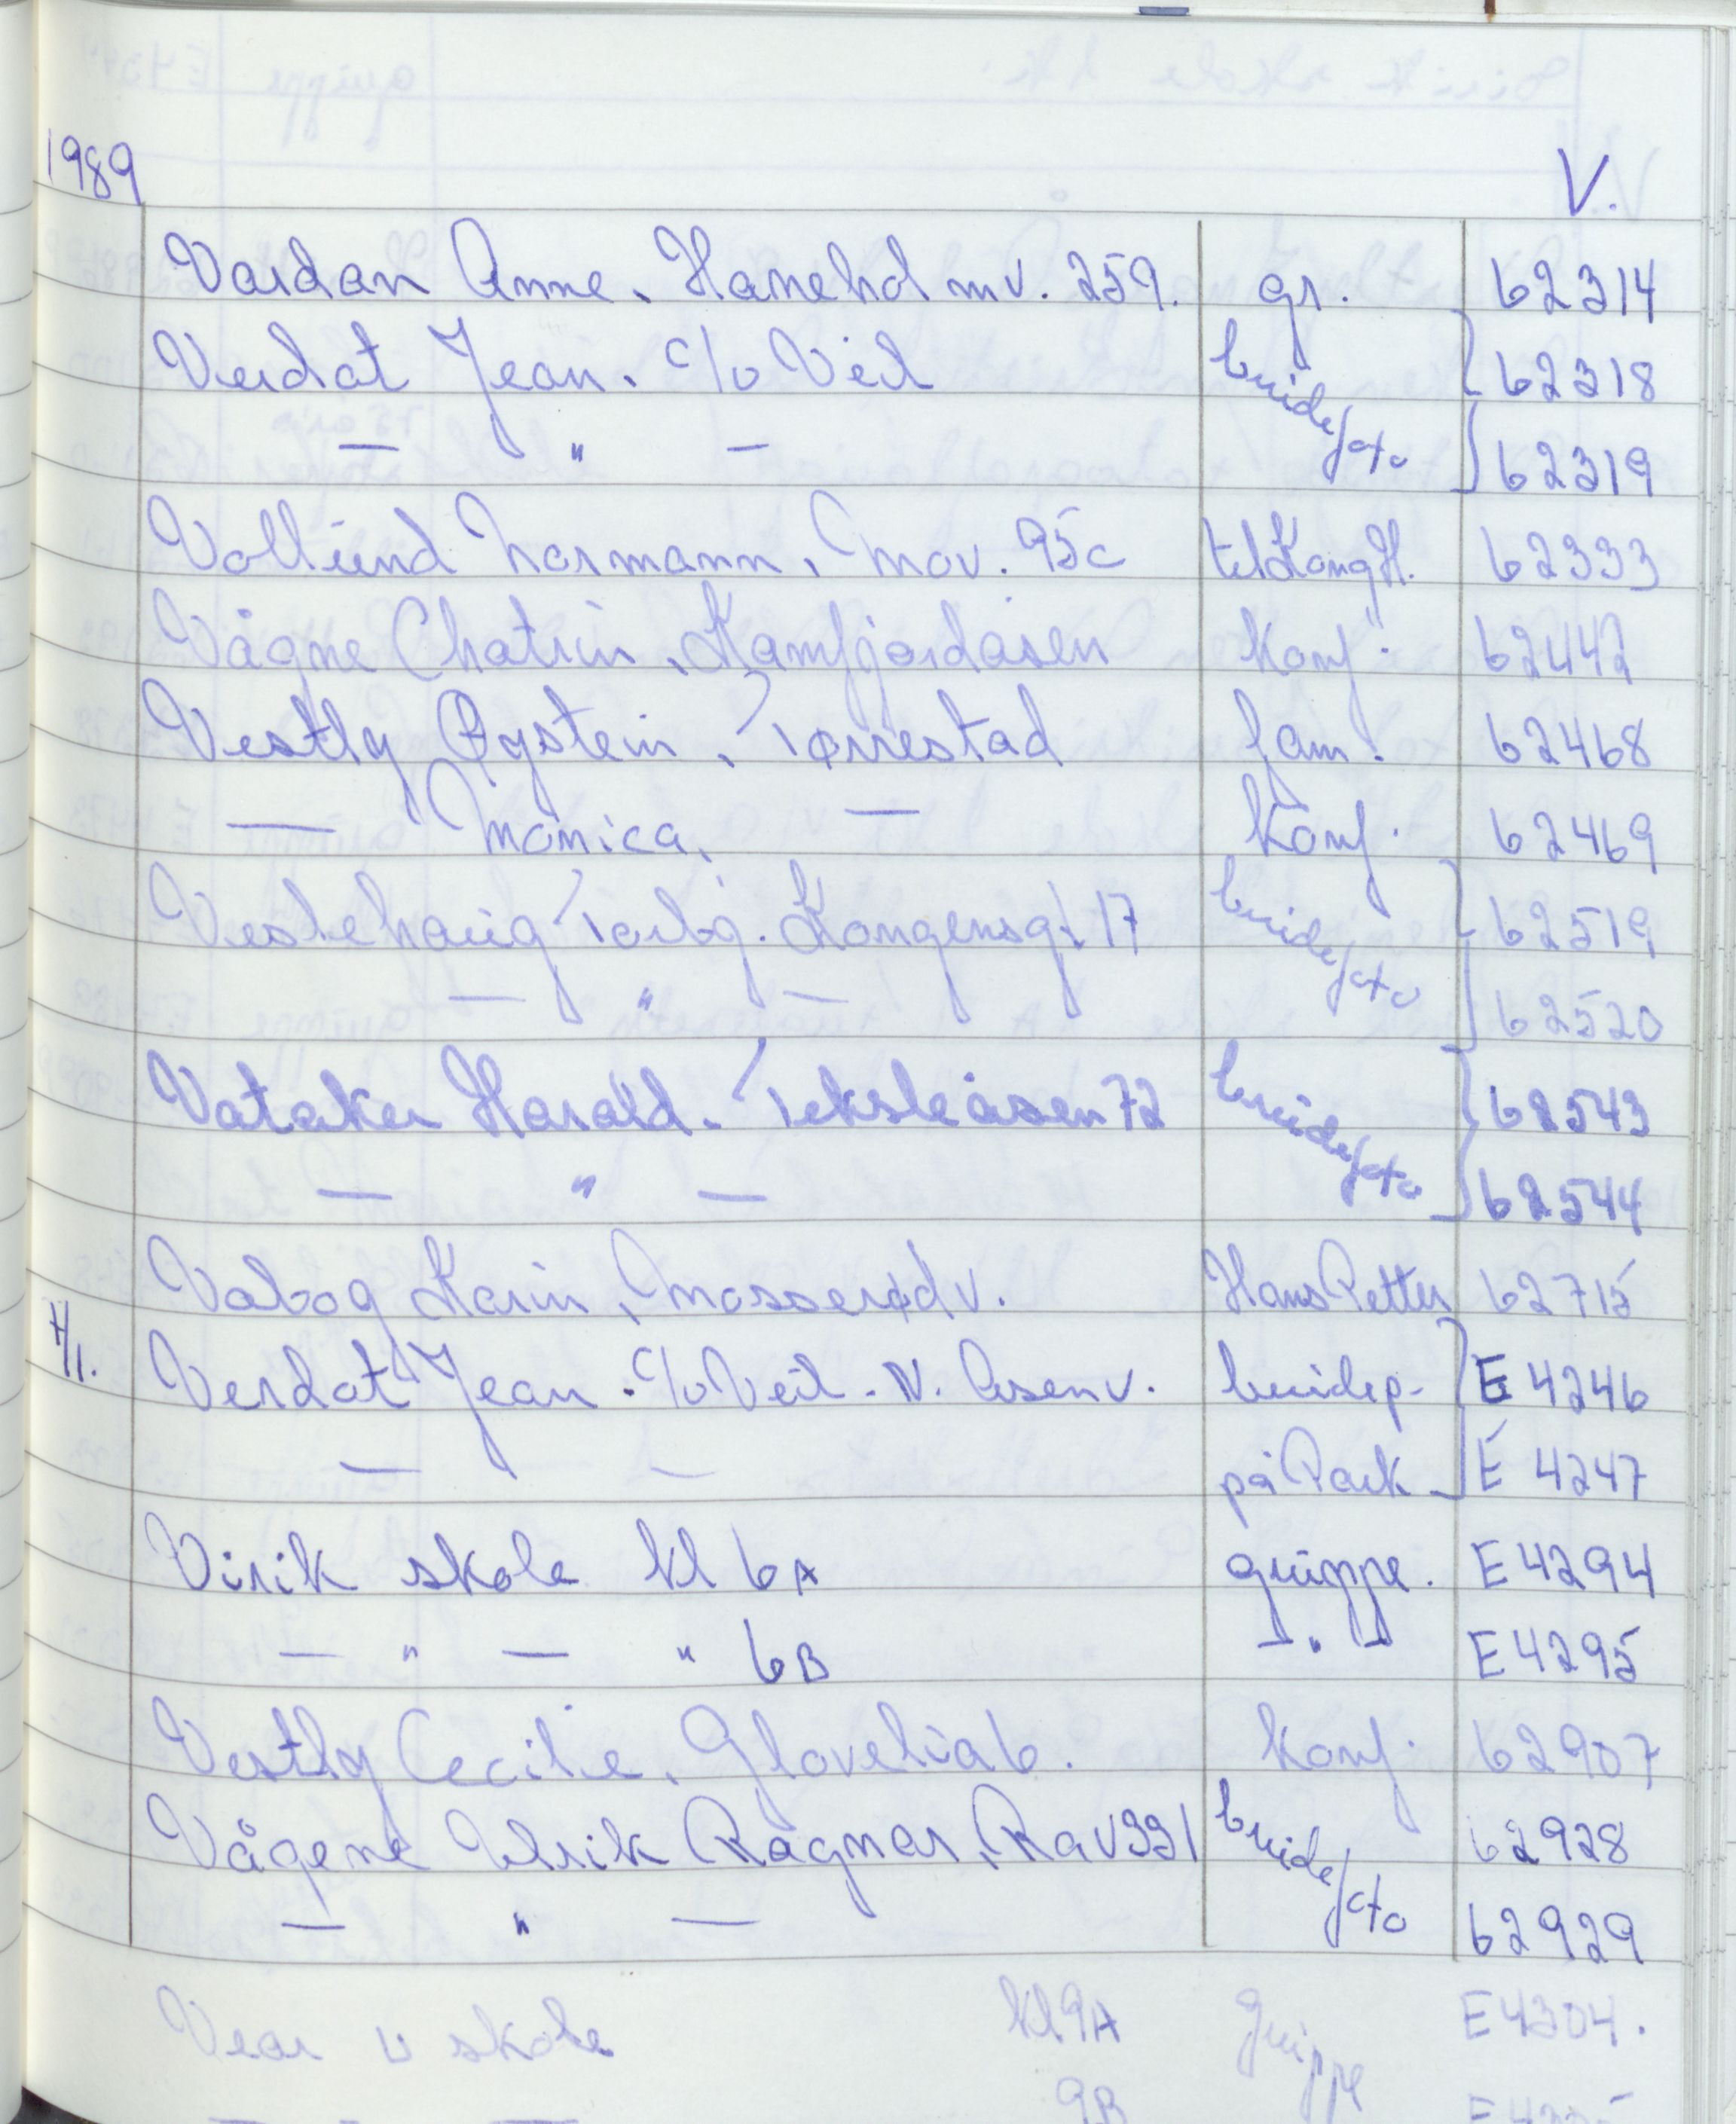 1989 V.
Vardan Anne. Haneholmv. 259. gr. 62314
Verdot Jean. c/o Veil brude/ato 62318
— " — 62319
Vollund Normann, Mov. 95c tel Kong H. 62333
Vågne Chatrin, Kamfjordåsen Konf. 62442
Vestly Øystein, Tørrestad fam. 62468
— Monica, — Konf. 62469
Veslehaug Torbj. Kongensgt 17 brude/ato 62519
— " — 62520
Vataker Harald. Veksleåsen 72 brude/ato 62543
— " — 62544
Vabog Karin, Mosserødv. Hans Petter 62715
7/1. Verdot Jean. c/o Veil - N. Åsenv. brudep- E 4246
— — på Park E 4247
Virik skole kl 6A gruppe. E 4294
— " — " 6B — " — E 4295
Vestly Cecilie, Glovelia 6. Konf. 62907
Vågene Ulrik Ragnar, Rav 331 brude/ato 62928
— " — 62929
Vear u skole Kl 9A gruppe E 4304.
— — 9B